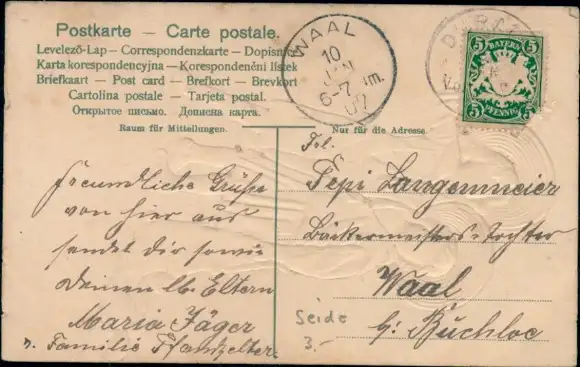 Postkarte – Carte postale.
Levelező-Lap – Correspondenzkarte – Dopisnice
Karta korespondencyjna – Korespondenční lístek
Briefkaart – Post card – Brefkort – Brevkort
Cartolina postale – Tarjeta postal.
Открытое письмо. Дописна карта.
Raum für Mitteilungen.
Nur für die Adresse.
WAAL
10
JAN
6-7 Nm.
07
5 BAYERN 5
5 PFENNIG 5
Freundliche Grüße
von hier aus
sendet dir sowie
deinen lb. Eltern
Maria Jäger
Familie
Frl.
Pepi Langenmeier
Bäckermeisters-tochter
Waal
b. Buchloe
Seide
3.-